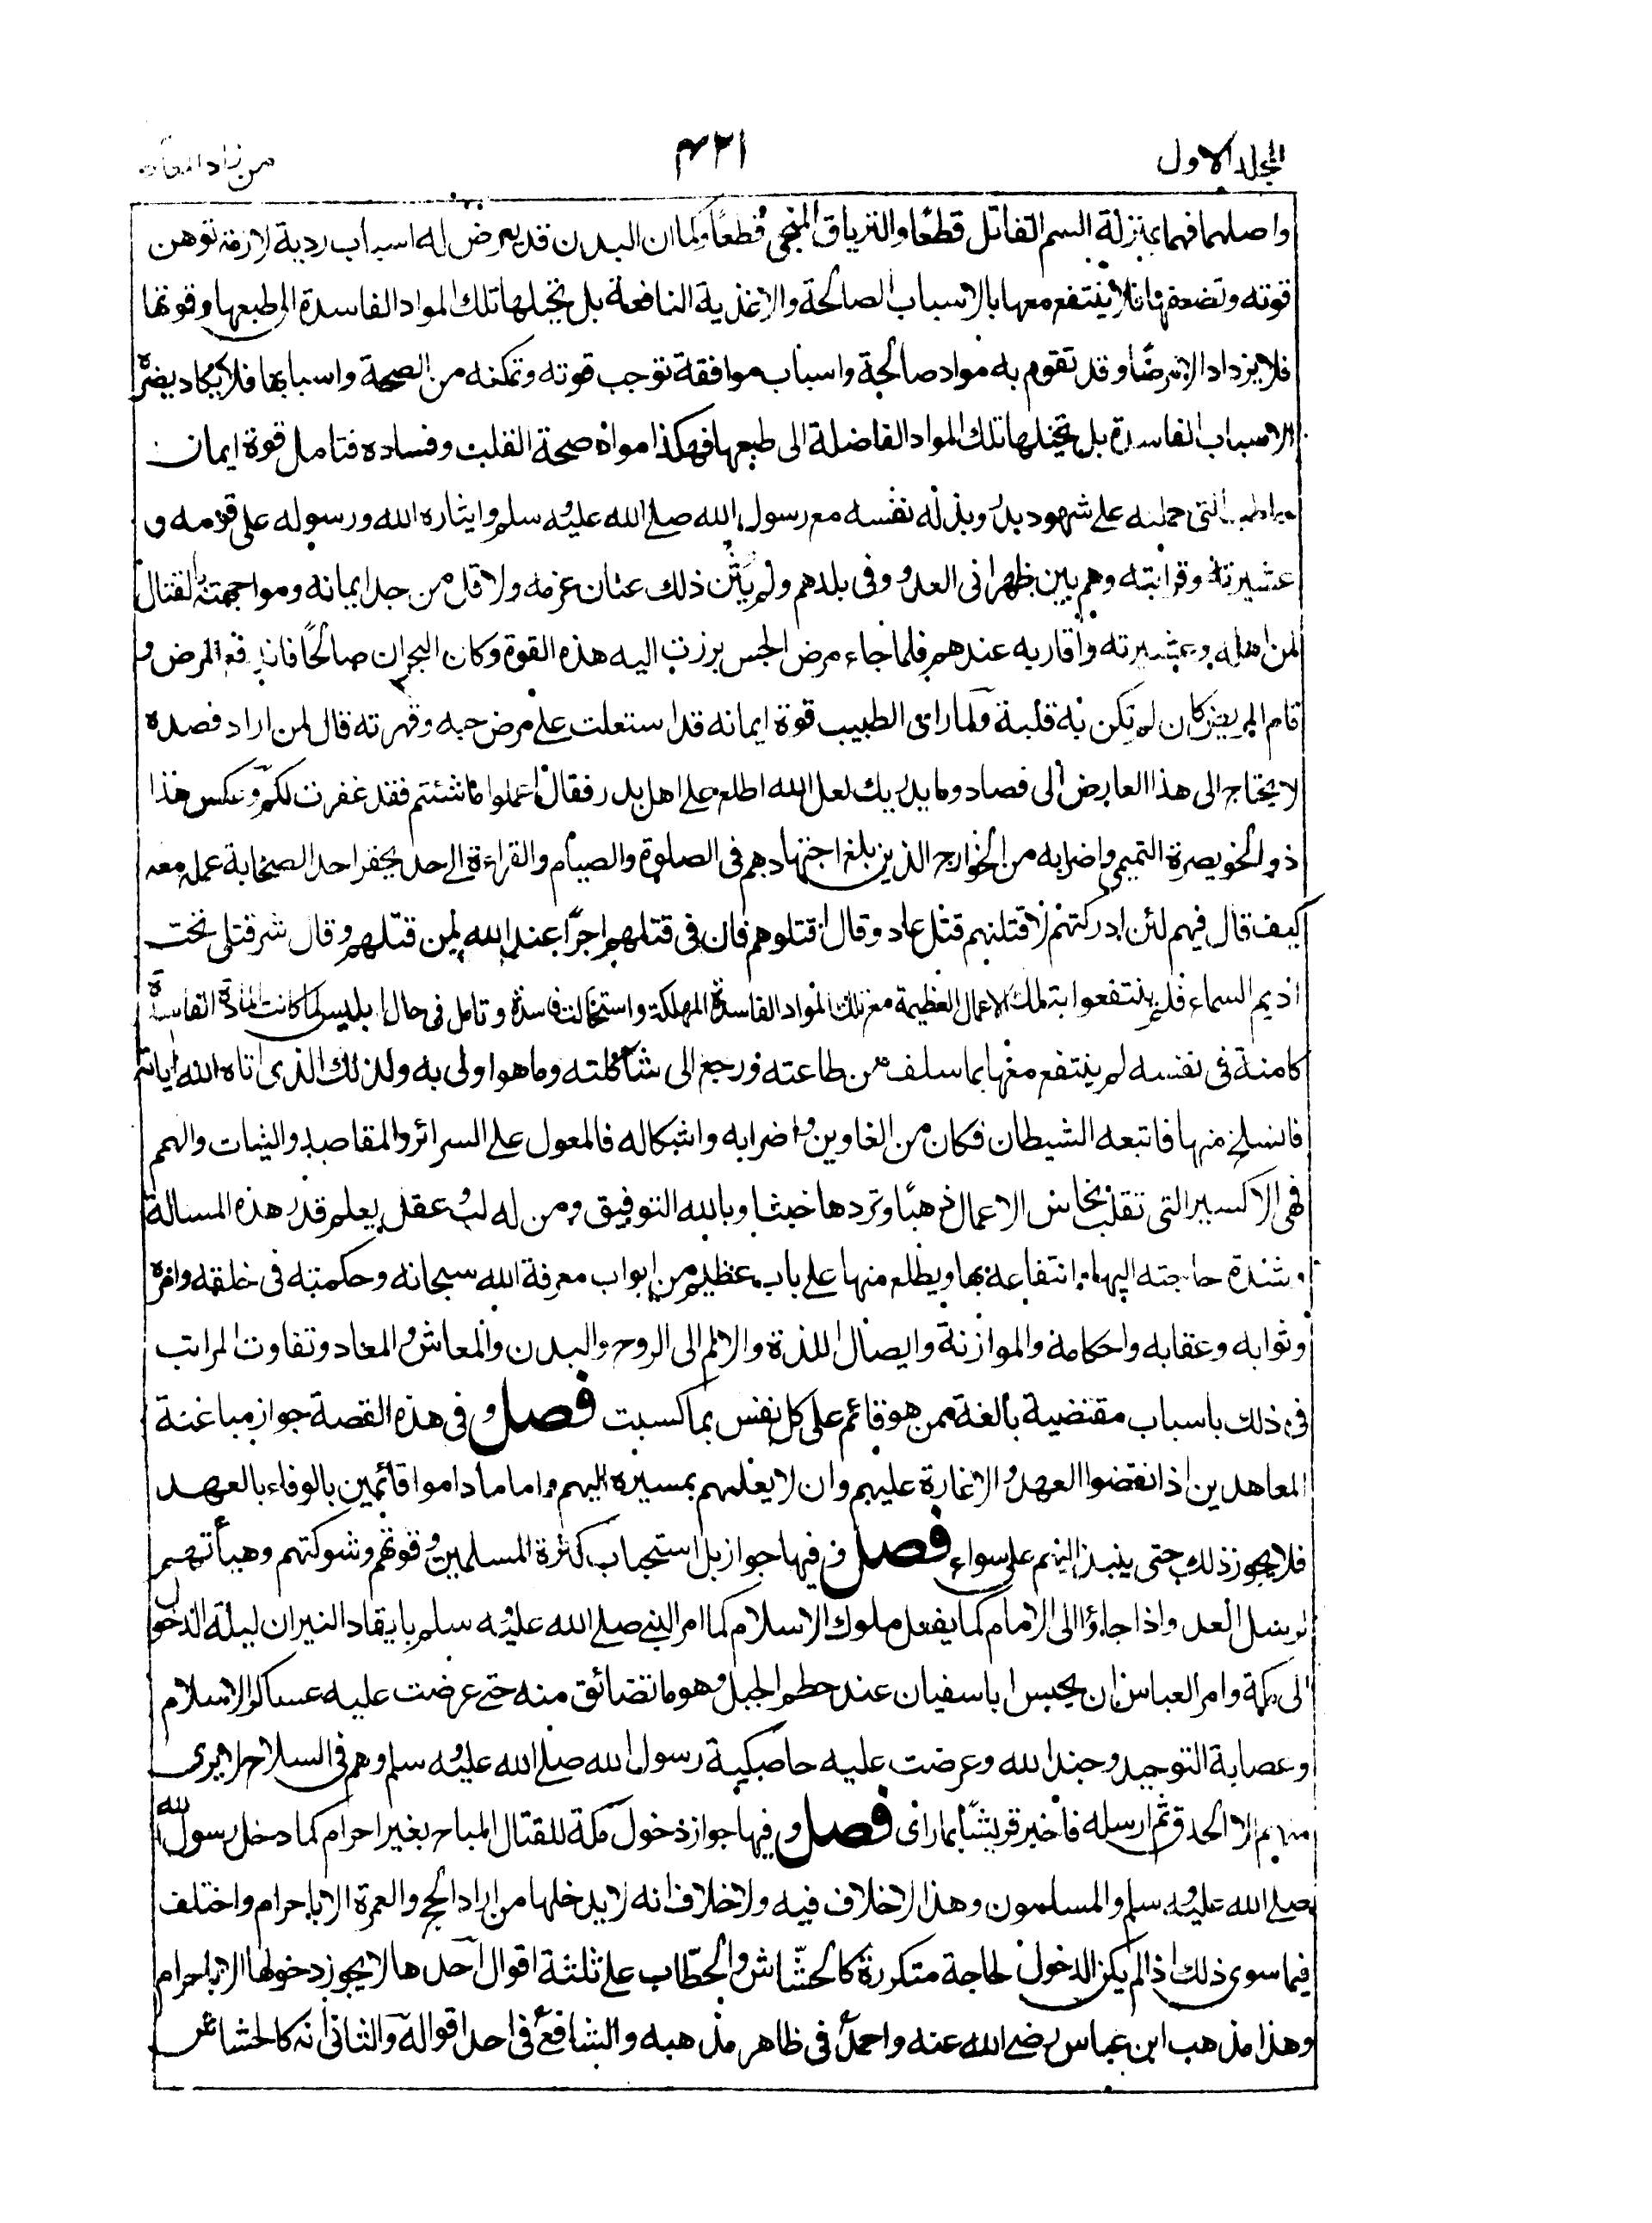 المجلد الاول
۴۲۱
من زاد المعاد
واصلهما فهما بمنزلة السم القاتل قطعًا والترياق المنجي قطعًا وكما ان البدن قد يعرض له اسباب ردية لازمة توهن
قوته وتضعفها فلا ينتفع معها بالاسباب الصالحة والاغذية النافعة بل تحيلها تلك المواد الفاسدة الى طبعها وقوتها
فلا يزداد الا مرضًا وقد تقوم به مواد صالحة واسباب موافقة توجب قوته وتمكنه من الصحة واسبابها فلا يكاد يضره
الاسباب الفاسدة بل تحيلها تلك المواد الفاضلة الى طبعها فهكذا مواد صحة القلب وفساده فتامل قوة ايمان
حاطب التى حملته على شهود بدر وبذله نفسه مع رسول الله صلى الله عليه وسلم وايثاره الله ورسوله على قومه و
عشيرته وقرابته وهم بين ظهرانى العدو وفى بلدهم ولم يثن ذلك عنان عزمه ولا فل من حد ايمانه ومواجهته القتال
لمن اهله وعشيرته واقاربه عندهم فلما جاء مرض الجس برزت اليه هذه القوة وكان البحران صالحًا فاندفع المرض و
قام المريض كان لم تكن به قلبة ولما راى الطبيب قوة ايمانه قد استعلت على مرض حبه وقهرته قال لمن اراد فصده
لا يحتاج الى هذا العارض الى فصاد وما يدريك لعل الله اطلع على اهل بدر فقال اعملوا ما شئتم فقد غفرت لكم وعكس هذا
ذو الخويصرة التميمى واضرابه من الخوارج الذين بلغ اجتهادهم فى الصلوة والصيام والقراءة الى حد يحقر احد الصحابة عمله معه
كيف قال فيهم لئن ادركتهم لاقتلنهم قتل عاد وقال اقتلوهم فان فى قتلهم اجرًا عند الله لمن قتلهم وقال شر قتلى تحت
اديم السماء فلم ينتفعوا بتلك الاعمال العظيمة مع تلك المواد الفاسدة المهلكة واستحالت فاسدة وتامل فى حال ابليس لما كانت المادة الفاسدة
كامنة فى نفسه لم ينتفع معها بما سلف من طاعته ورجع الى شاكلته وما هو اولى به ولذلك الذى اتاه الله اياته
فانسلخ منها فاتبعه الشيطان فكان من الغاوين واضرابه واشكاله فالمعول على السرائر والمقاصد والنيات والهمم
فهى الاكسير التى تقلب نحاس الاعمال ذهبًا وتردها خبثا وبالله التوفيق ومن له لب وعقل يعلم قدر هذه المسالة
وشدة حاجته اليها وانتفاعه بها ويطلع منها على باب عظيم من ابواب معرفة الله سبحانه وحكمته فى خلقه وامره
وثوابه وعقابه واحكامه والموازنة وايصال اللذة والالم الى الروح والبدن والمعاش والمعاد وتفاوت المراتب
فى ذلك باسباب مقتضية بالغة ممن هو قائم على كل نفس بما كسبت فصل و فى هذه القصة جواز مباغتة
المعاهدين اذا نقضوا العهد والاغارة عليهم وان لا يعلمهم بمسيره اليهم واما ما داموا قائمين بالوفاء بالعهد
فلا يجوز ذلك حتى ينبذ اليهم على سواء فصل و فيها جواز بل استحباب كثرة المسلمين وقوتهم وشوكتهم وهيأتهم
لرسل العدو اذا جاؤا الى الامام كما يفعل ملوك الاسلام كما امر النبى صلى الله عليه وسلم بايقاد النيران ليلة الدخول
الى مكة وامر العباس ان يحبس ابا سفيان عند حطم الجبل وهو ما تضائق منه حتى عرضت عليه عساكر الاسلام
وعصابة التوحيد وجند الله وعرضت عليه حاصبكية رسول الله صلى الله عليه وسلم وهم فى السلاح لا يرى
منهم الا الحدق ثم ارسله فاخبر قريشًا بما راى فصل و فيها جواز دخول مكة للقتال المباح بغير احرام كما دخل رسول الله
صلى الله عليه وسلم والمسلمون وهذا لا خلاف فيه ولا خلاف انه لا يدخلها من اراد الحج والعمرة الا باحرام واختلف
فيما سوى ذلك اذا لم يكن الدخول لحاجة متكررة كالحشّاش والحطّاب على ثلثة اقوال احدها لا يجوز دخولها الا باحرام
وهذا مذهب ابن عباس رضى الله عنه واحمد فى ظاهر مذهبه والشافعى فى احد اقواله والثانى انه كالحشاش